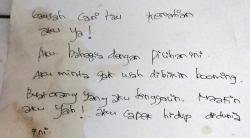 Gausah Cari tau kematian
aku ya!
Aku bahagia dengan pilihan ini
Aku minta gak usah dibikin booming.
Buat orang yang aku tinggalin. Maafin
aku yah! aku capek hidup didunia
ini